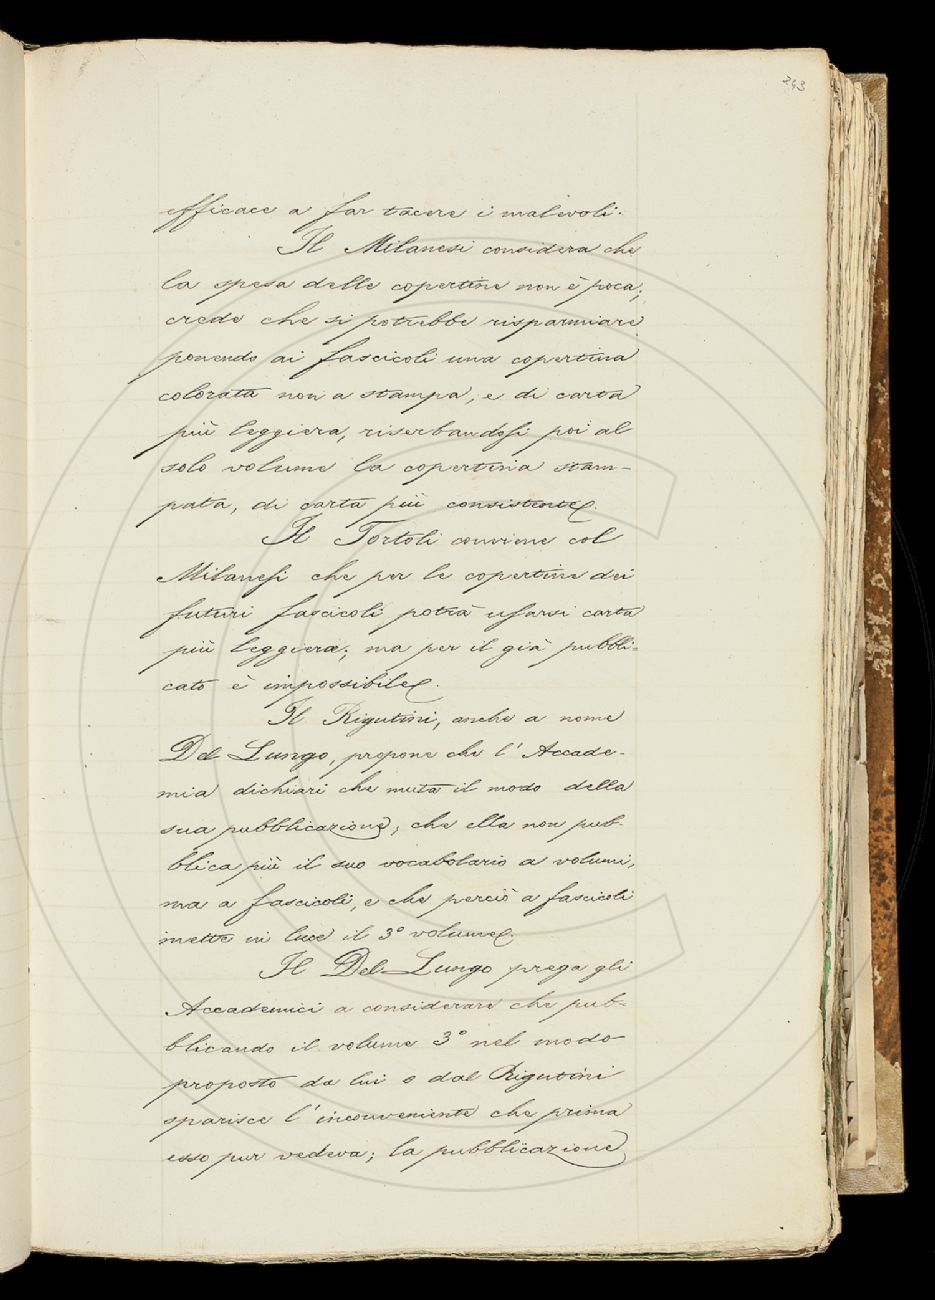 243
efficace a far tacere i malevoli.
Il Milanesi considera che
la spesa delle copertine non è poca;
crede che si potrebbe risparmiare
ponendo ai fascicoli una copertina
colorata non a stampa, e di carta
più leggiera, riserbandosi poi al
solo volume la copertina stam-
pata, di carta più consistente.
Il Tortoli conviene col
Milanesi che per le copertine dei
futuri fascicoli potrà usarsi carta
più leggiera; ma per il già pubbli-
cato è impossibile.
Il Rigutini, anche a nome
Del Lungo, propone che l'Accade-
mia dichiari che muta il modo della
sua pubblicazione; che ella non pub-
blica più il suo vocabolario a volumi,
ma a fascicoli, e che perciò a fascicoli
mette in luce il 3° volume.
Il Del-Lungo prega gli
Accademici a considerare che pub-
blicando il volume 3° nel modo
proposto da lui e dal Rigutini
sparisce l'inconveniente che prima
esso pur vedeva; la pubblicazione